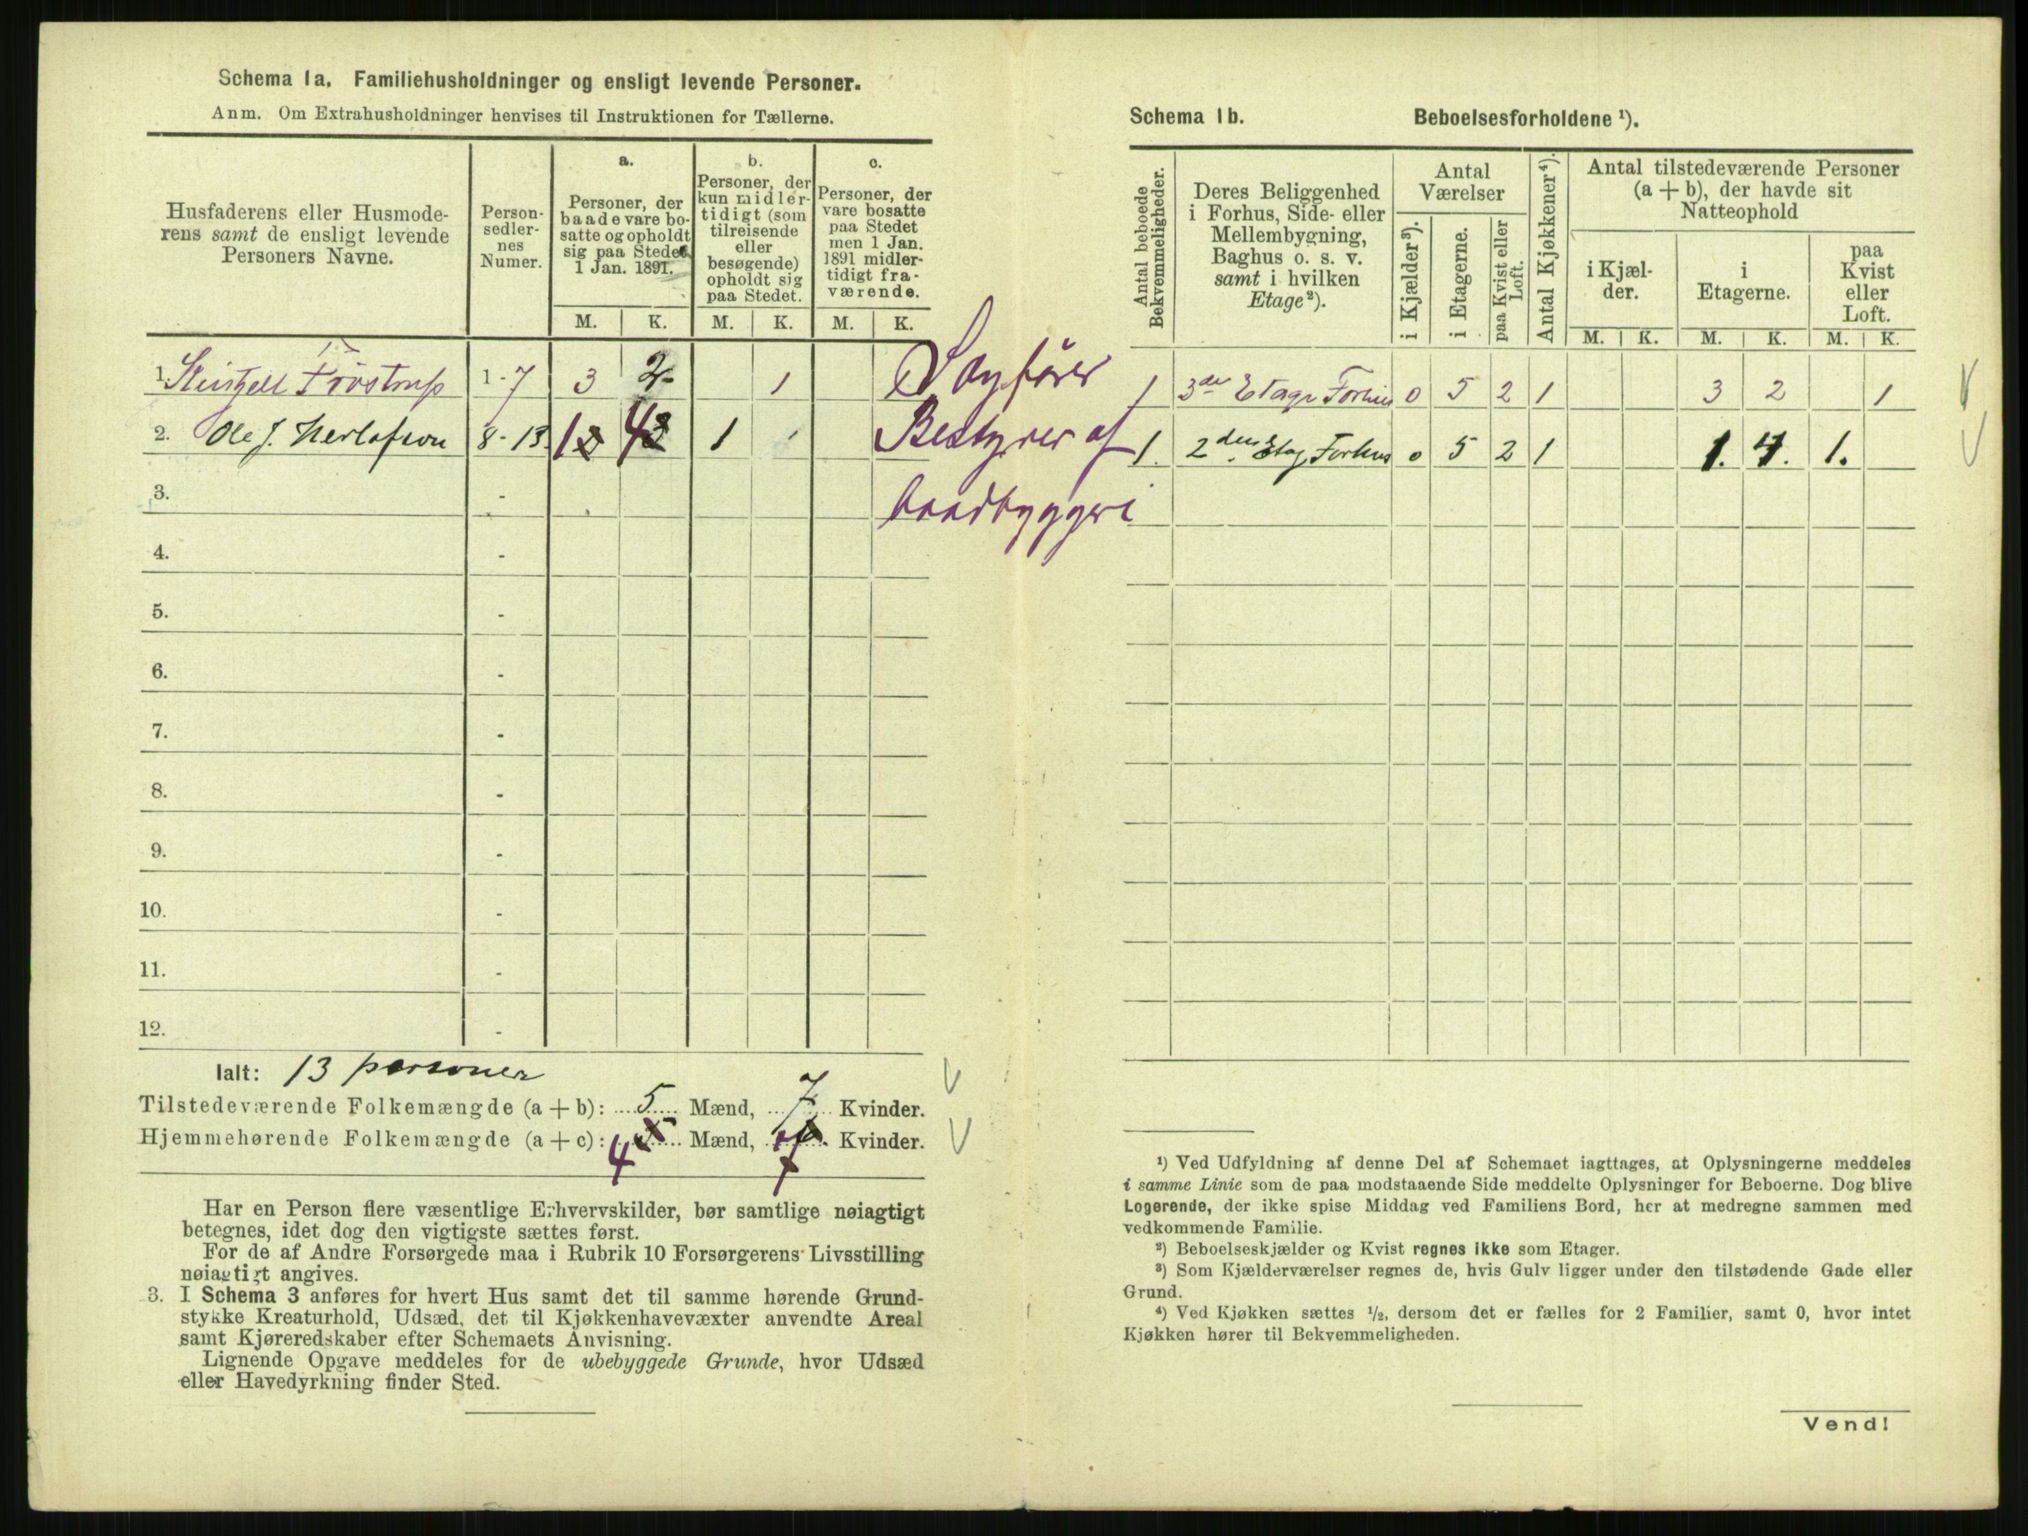 Schema 1a. Familiehusholdninger og ensligt levende Personer.
Anm. Om Extrahusholdninger henvises til Instruktionen for Tællerne.
Husfaderens eller Husmode-
rens samt de ensligt levende
Personers Navne.
Person-
sedler-
nes
Numer.
a.
Personer, der
baade vare bo-
satte og opholdt
sig paa Stedet
1 Jan. 1891.
b.
Personer, der
kun midler-
tidigt (som
tilreisende
eller
besøgende)
opholdt sig
paa Stedet.
c.
Personer, der
vare bosatte
paa Stedet
men 1 Jan.
1891 midler-
tidigt fra-
værende.
M. K. M. K. M. K.
1. Frøstrup 1-7 3 2 1 Sagfører
2. Ole J. Herlofson 8-13 1 4 1 Bestyrer af
3. - baadbyggeri
4. -
5. -
6. -
7. -
8. -
9. -
10. -
11. -
12. -
Ialt: 13 personer
Tilstedeværende Folkemængde (a + b): 5 Mænd, 7 Kvinder.
Hjemmehørende Folkemængde (a + c): 4 Mænd, Kvinder.
Har en Person flere væsentlige Erhvervskilder, bør samtlige nøiagtigt
betegnes, idet dog den vigtigste sættes først.
For de af Andre Forsørgede maa i Rubrik 10 Forsørgerens Livsstilling
nøiagtigt angives.
3. I Schema 3 anføres for hvert Hus samt det til samme hørende Grund-
stykke Kreaturhold, Udsæd, det til Kjøkkenhavevæxter anvendte Areal
samt Kjøreredskaber efter Schemaets Anvisning.
Lignende Opgave meddeles for de ubebyggede Grunde, hvor Udsæd
eller Havedyrkning finder Sted.
Schema 1b. Beboelsesforholdene ¹).
Antal beboede
Bekvemmeligheder.
Deres Beliggenhed
i Forhus, Side- eller
Mellembygning,
Baghus o. s. v.
samt i hvilken
Etage ²).
Antal
Værelser
i Kjælder ³).
i Etagerne.
paa Kvist eller
Loft.
Antal Kjøkkener ⁴).
Antal tilstedeværende Personer
(a + b), der havde sit
Natteophold
i Kjæl-
der.
i
Etagerne.
paa
Kvist
eller
Loft.
M. K. M. K. M. K.
1 3de Etage Forhus 0 5 2 1 3 2 1
1. 2den Etag Forhus 0 5 2 1 1. 4. 1.
¹) Ved Udfyldning af denne Del af Schemaet iagttages, at Oplysningerne meddeles
i samme Linie som de paa modstaaende Side meddelte Oplysninger for Beboerne. Dog blive
Logerende, der ikke spise Middag ved Familiens Bord, her at medregne sammen med
vedkommende Familie.
²) Beboelseskjælder og Kvist regnes ikke som Etager.
³) Som Kjælderværelser regnes de, hvis Gulv ligger under den tilstødende Gade eller
Grund.
⁴) Ved Kjøkken sættes ½, dersom det er fælles for 2 Familier, samt 0, hvor intet
Kjøkken hører til Bekvemmeligheden.
Vend!